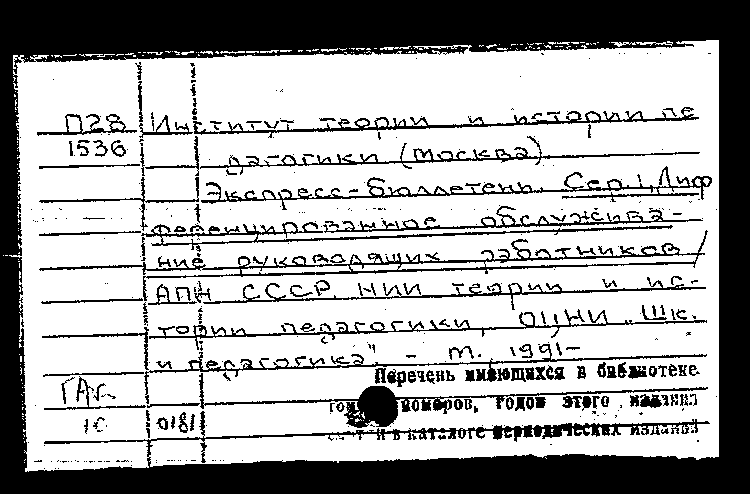 П28 Институт теории и истории пе
1536 дагогики (Москва).
Экспресс-бюллетень. Сер.1, Диф
ференцированное обслужива-
ние руководящих работников /
АПН СССР. НИИ теории и ис-
тории педагогики, ОЦНИ „Шк.
и педагогика" . - М., 1991-
Перечень имеющихся в библиотеке
номеров, годов этого издания
и в каталоге периодических изданий
1С 0181